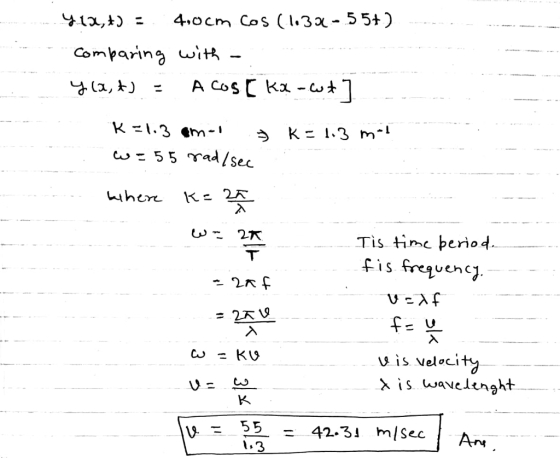 y(x,t) = 4.0cm Cos (1.3x - 55t)
Comparing with -
y(x,t) = A Cos [ Kx - ωt ]
K = 1.3 m-1 ⇒ K = 1.3 m-1
ω = 55 rad/sec
where K = 2π/λ
ω = 2π/T
T is time period.
= 2πf
f is frequency.
= 2πv/λ
v = λf
f = v/λ
ω = Kv
v is velocity
v = ω/K
λ is wavelenght
v = 55/1.3 = 42.31 m/sec Ans.